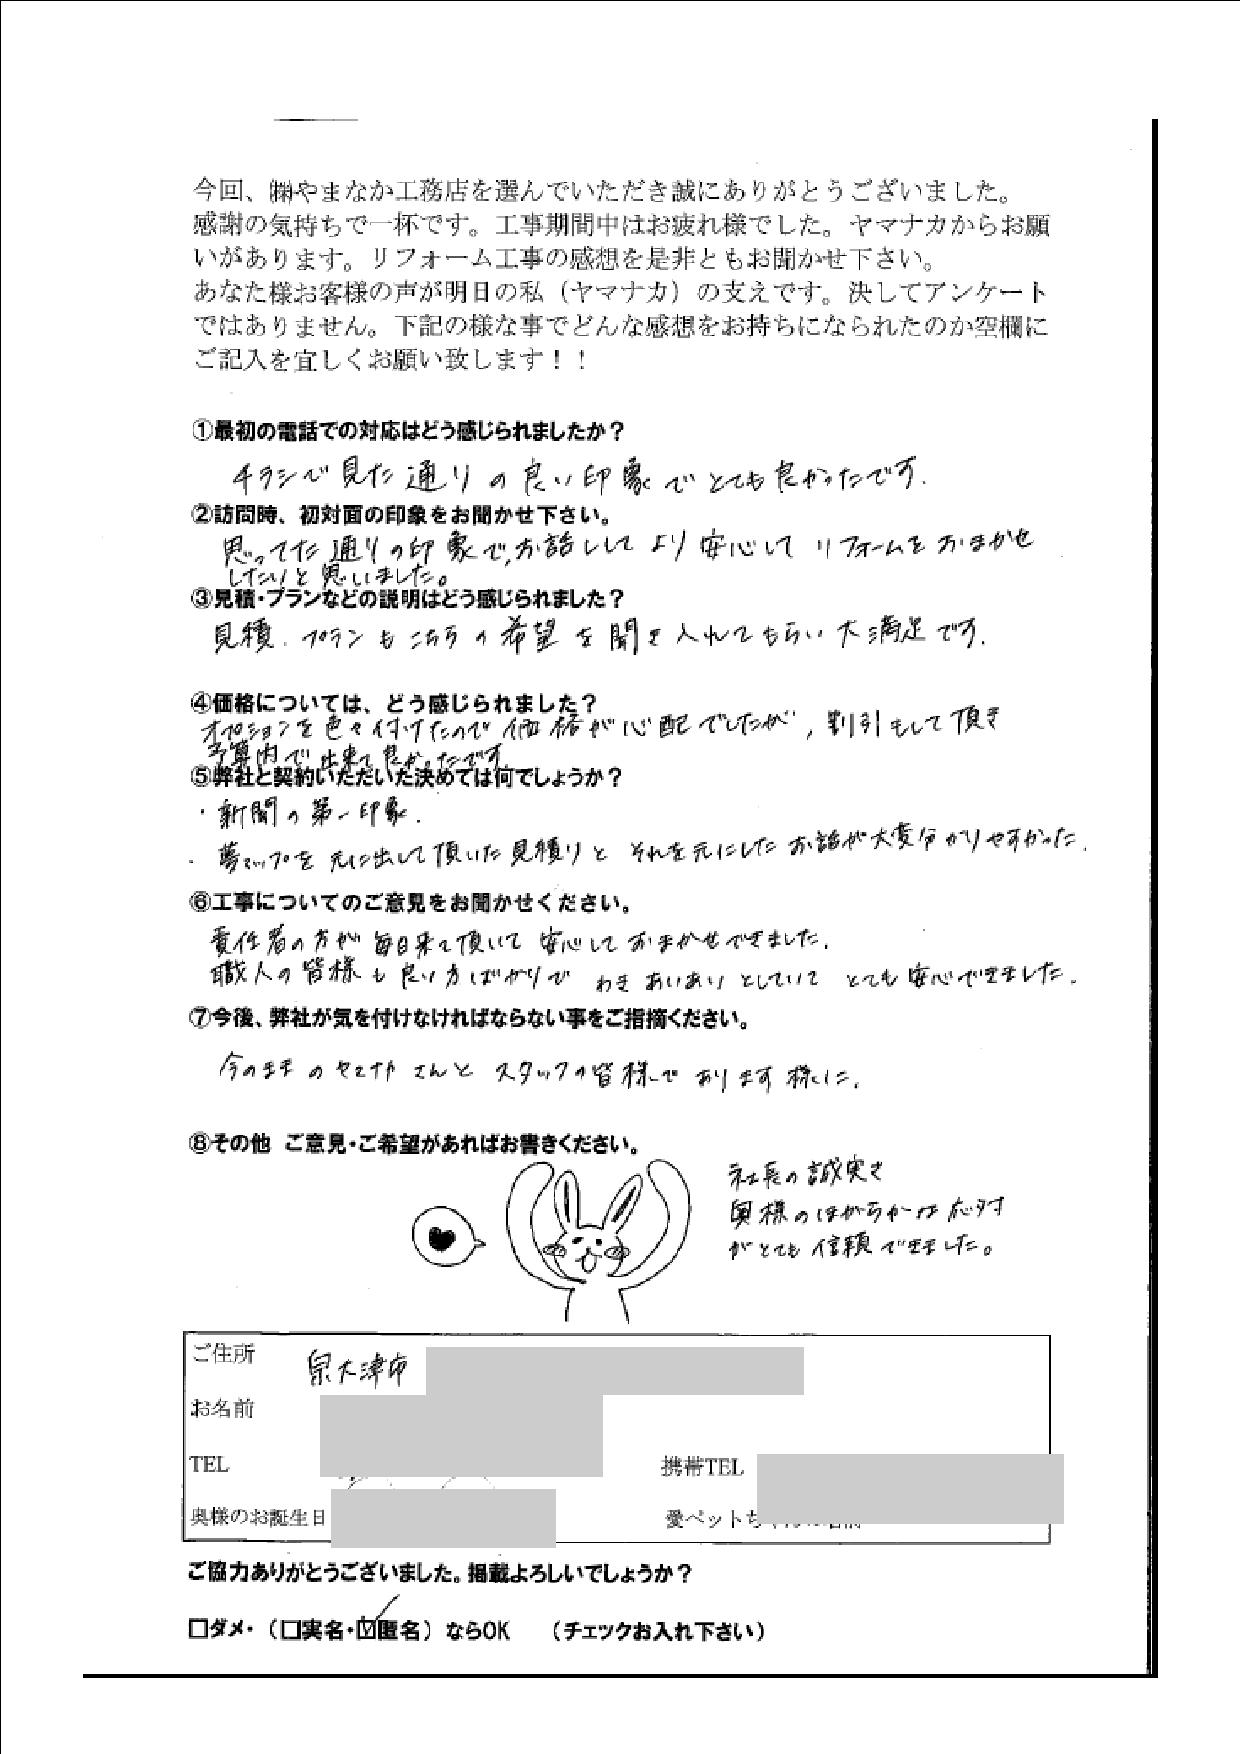 今回、㈱やまなか工務店を選んでいただき誠にありがとうございました。
感謝の気持ちで一杯です。工事期間中はお疲れ様でした。ヤマナカからお願
いがあります。リフォーム工事の感想を是非ともお聞かせ下さい。
あなた様お客様の声が明日の私（ヤマナカ）の支えです。決してアンケート
ではありません。下記の様な事でどんな感想をお持ちになられたのか空欄に
ご記入を宜しくお願い致します！！
①最初の電話での対応はどう感じられましたか？
チラシで見た通りの良い印象でとても良かったです.
②訪問時、初対面の印象をお聞かせ下さい。
思ってた通りの印象で,お話ししてより安心してリフォームをおまかせ
したいと思いました。
③見積・プランなどの説明はどう感じられました？
見積.プランもこちらの希望を聞き入れてもらい大満足です.
④価格については、どう感じられました？
オプションを色々付けたので価格が心配でしたが,割引もして頂き
予算内で出来て良かったです
⑤弊社と契約いただいた決めては何でしょうか？
・新聞の第一印象.
・夢マップを元に出して頂いた見積りとそれを元にしたお話が大変分かりやすかった.
⑥工事についてのご意見をお聞かせください。
責任者の方が毎日来て頂いて安心しておまかせできました.
職人の皆様も良い方ばかりでわきあいあいとしていてとても安心できました.
⑦今後、弊社が気を付けなければならない事をご指摘ください。
今のままのヤマナカさんとスタッフの皆様であります様に.
⑧その他 ご意見・ご希望があればお書きください。
社長の誠実さ
奥様のほがらかな応対
がとても信頼できました。
ご住所 泉大津市
お名前
TEL 携帯TEL
奥様のお誕生日 愛ペットち
ご協力ありがとうございました。掲載よろしいでしょうか？
□ダメ・（□実名・☑匿名）ならOK （チェックお入れ下さい）